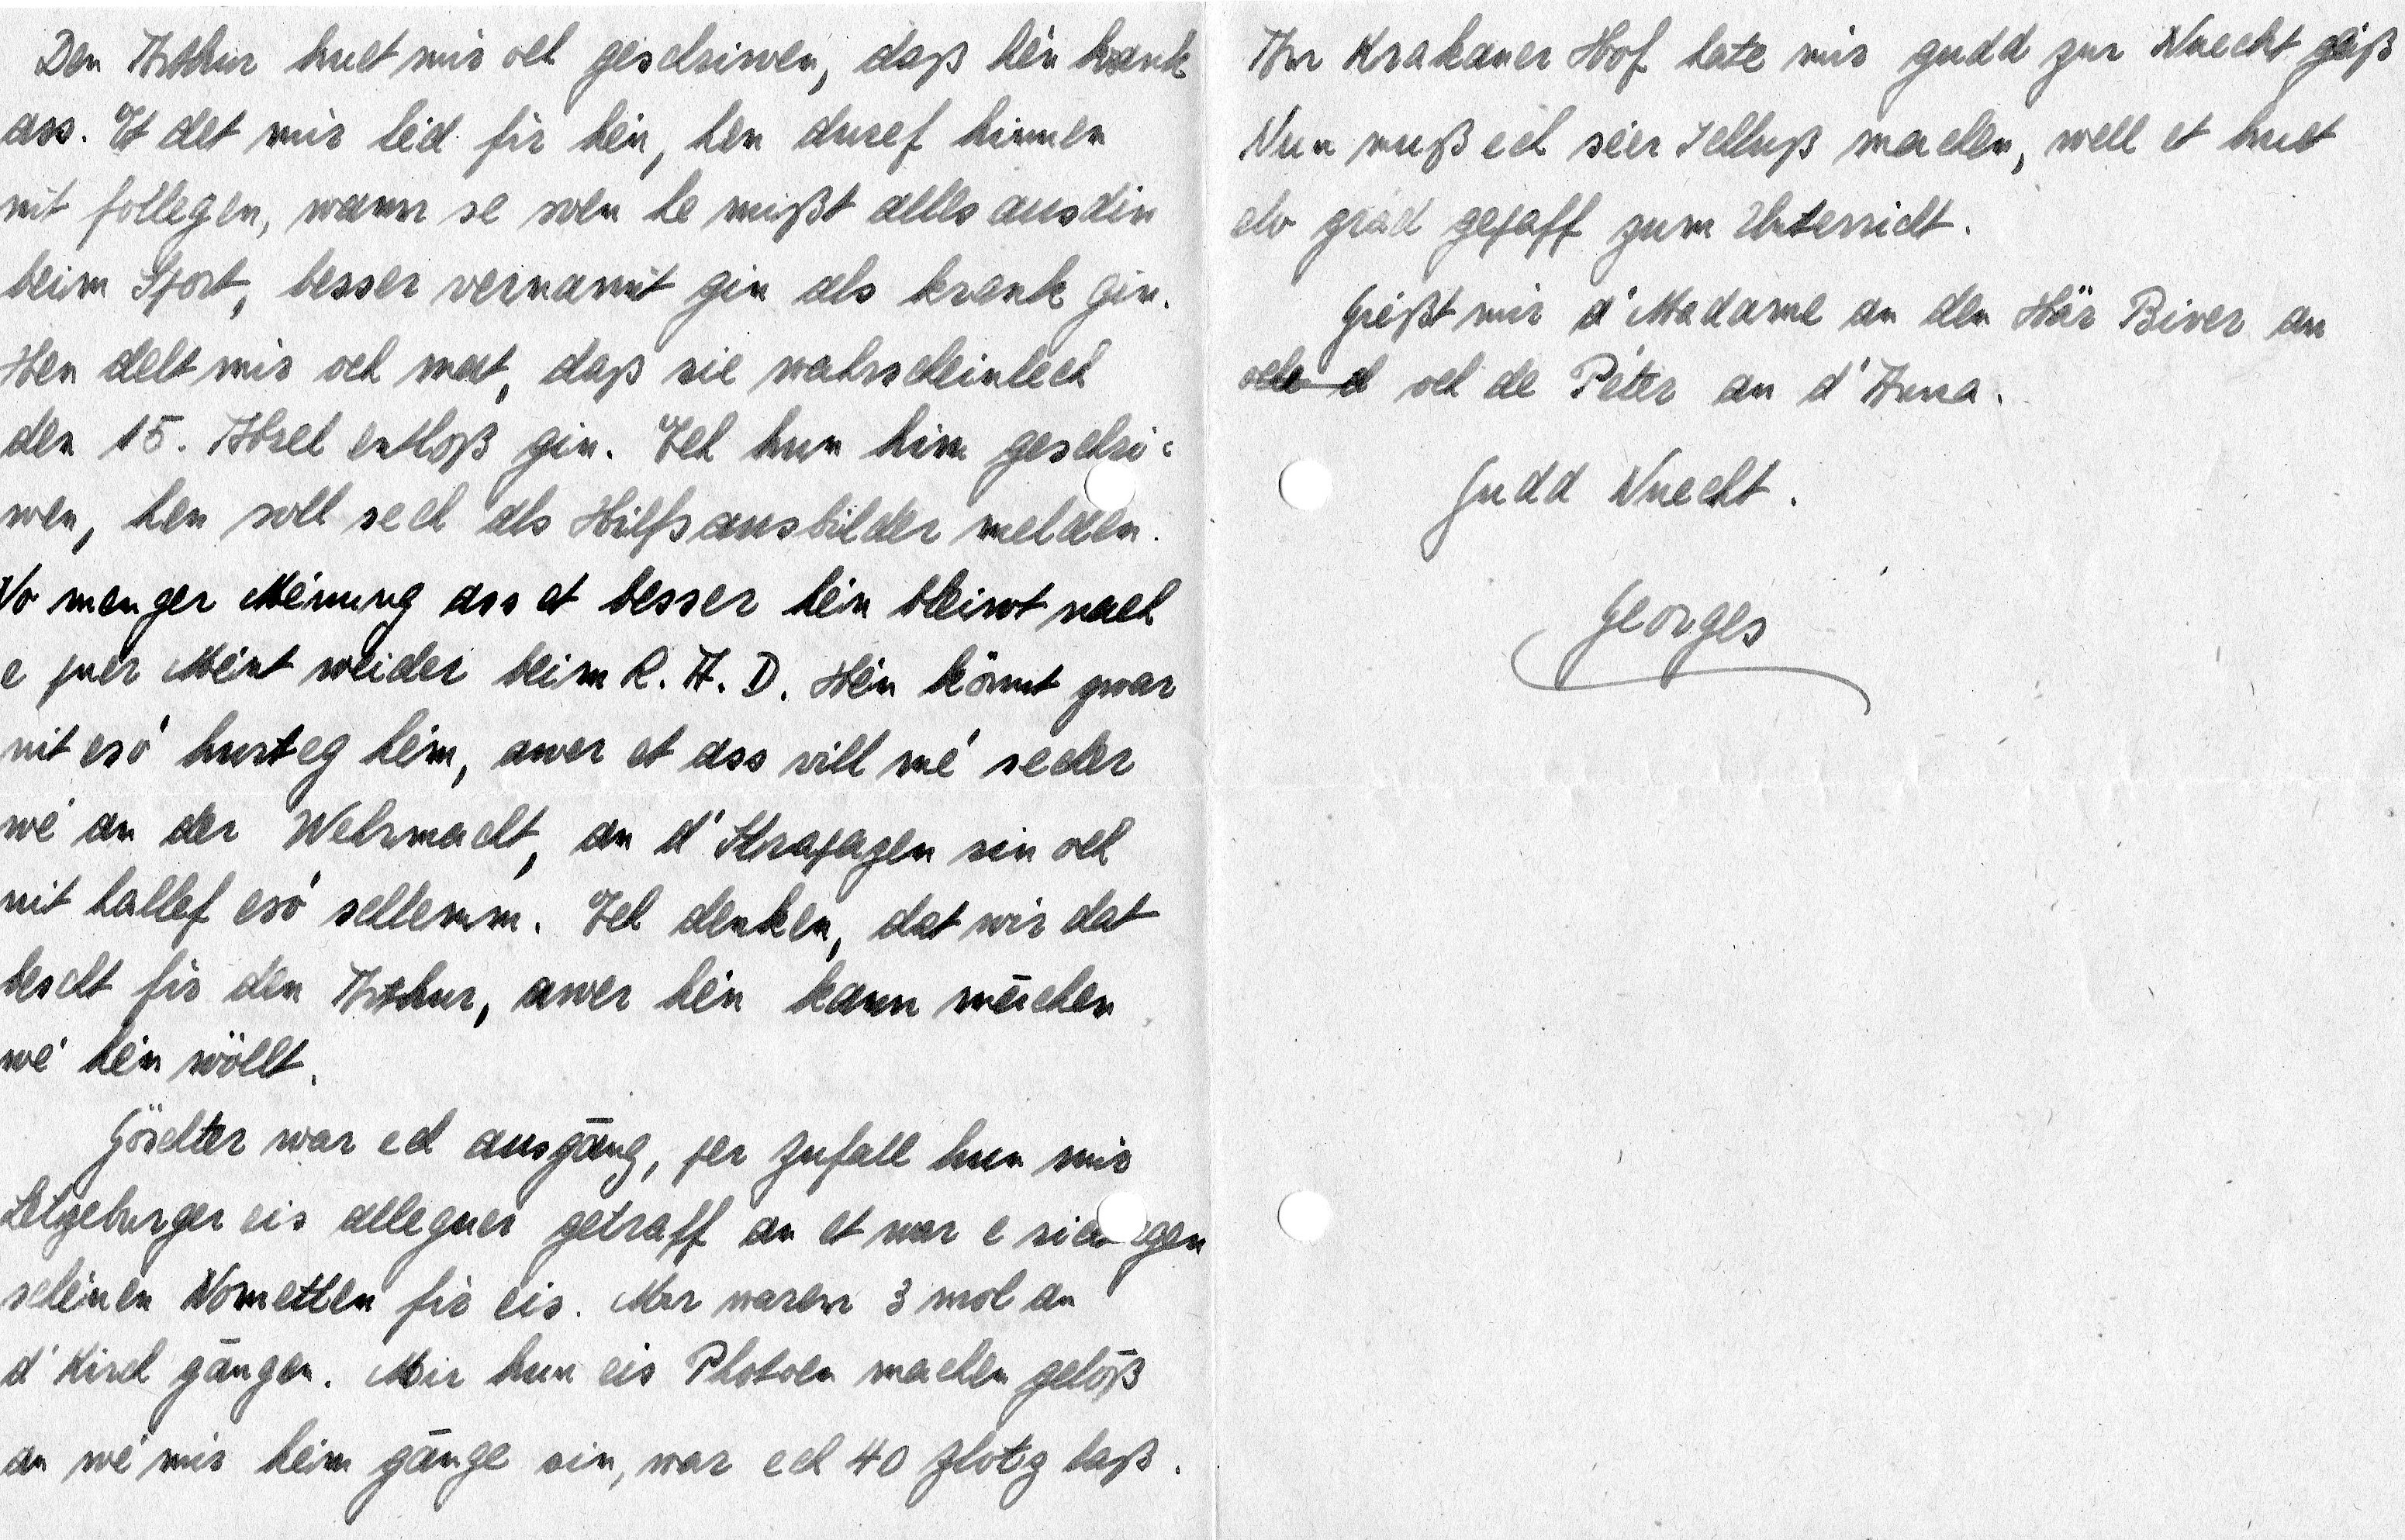 Den Arthur huet mir och geschriwen, daß hén krank
ass. Et det mir léd fir hén, hen duref hinnen
nit follegen, wann se soen he mißt alles ausdin
beim Sport, besser vernannt gin als krank gin.
Hen delt mir och mat, daß sie wahrscheinlech
den 15. Abrel entloß gin. Ech hun him geschri-
wen, hen soll sech als Hilfsausbilder melden.
Vo menger Ménung ass et besser hén bleiwt nach
e puer Méint weider beim R.A.D. Hén könnt zwar
nit esó hurteg hém, awer et ass vill mé secher
wé an der Wehrmacht, an d'Strapazen sin och
nit hallef esó schlemm. Ech denken, dat wir dat
bescht fir den Arthur, awer hén kann māchen
wé hén wöllt.
Göschter war ech ausgāng, per Zufall hun mir
Letzeburger eis alleguer getraff an et war e
schéinen Nometten fir eis. Mir waren 3 mol an
d'Kirch gāngen. Mir hun eis Photoen machen gelōß
an wé mir hém gānge sin, war ech 40 Zloty laß.
Am Krakauer Hof hate mir gudd zur Nuecht gäß
Nun muß ech séier Schluß machen, well et huet
elo grad gepaff zum Unterricht.
Gréißt mir d'Madame an den Här Biver an
och de Péter an d'Anna.
Gudd Nuecht.
Georges